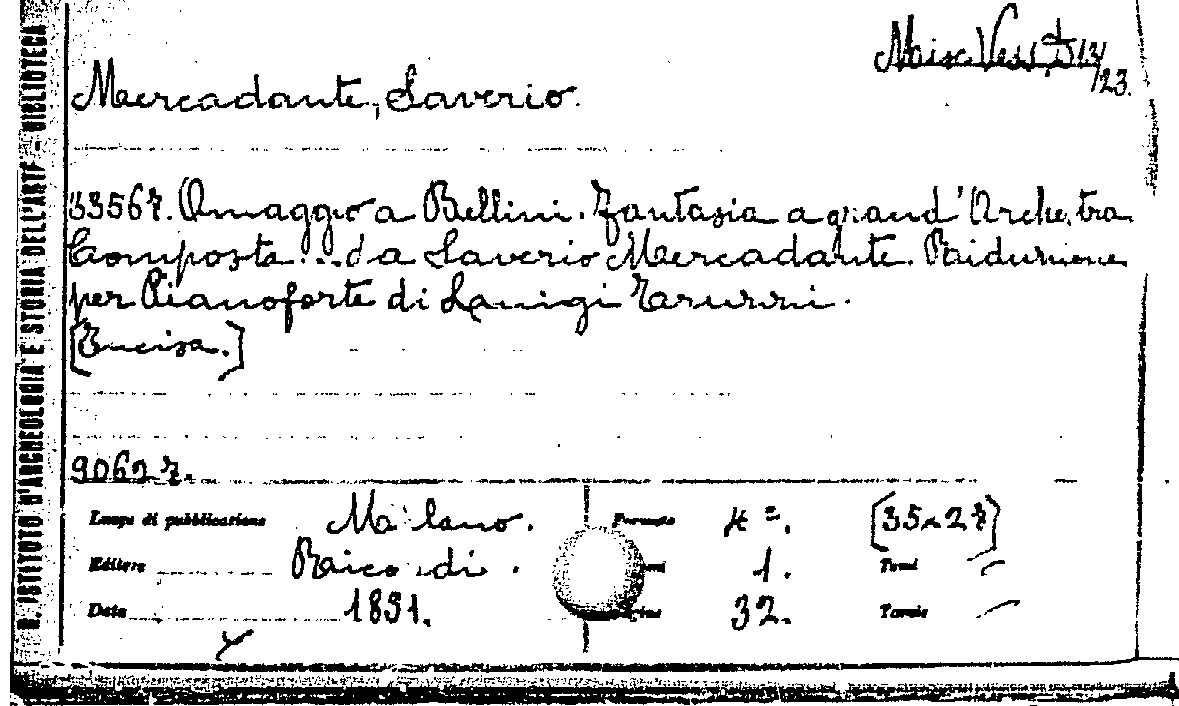 Misc. Vess. 13/23.
Mercadante, Saverio.
33567. Omaggio a Bellini. Fantasia a grand'Orchestra
Composta... da Saverio Mercadante. Riduzione
per Pianoforte di Luigi Truzzi.
[Incisa.]
90627.
Luogo di pubblicazione Milano. Formato 4º. [35x27]
Editore Ricordi. 1. Tomi
Data 1891. 32. Tavole
R. ISTITUTO D'ARCHEOLOGIA E STORIA DELL'ARTE - BIBLIOTECA